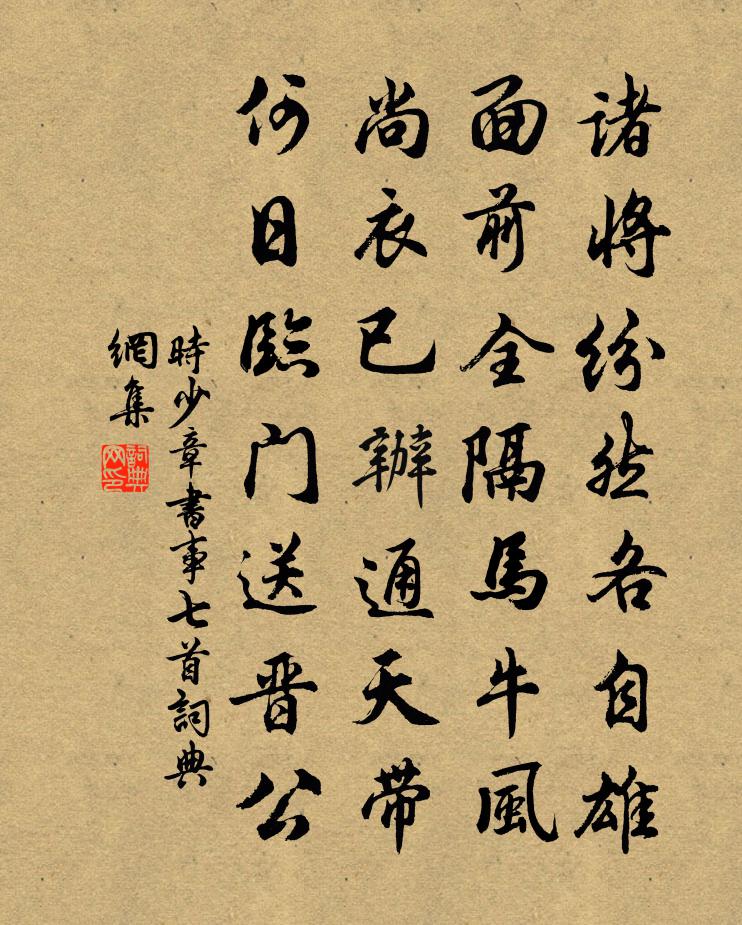 諸將紛然各自雄
面前全隔馬牛風
尚衣已辦通天帶
何日臨门送晋公
時少章書事七首詞典
網集
詞典
网印